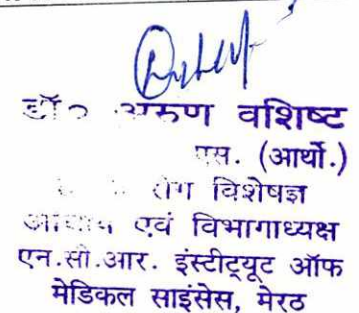 डॉ० अरुण वशिष्ट
एस. (आर्थो.)
रोग विशेषज्ञ
आचार्य एवं विभागाध्यक्ष
एन.सी.आर. इंस्टीट्यूट ऑफ
मेडिकल साइंसेस, मेरठ